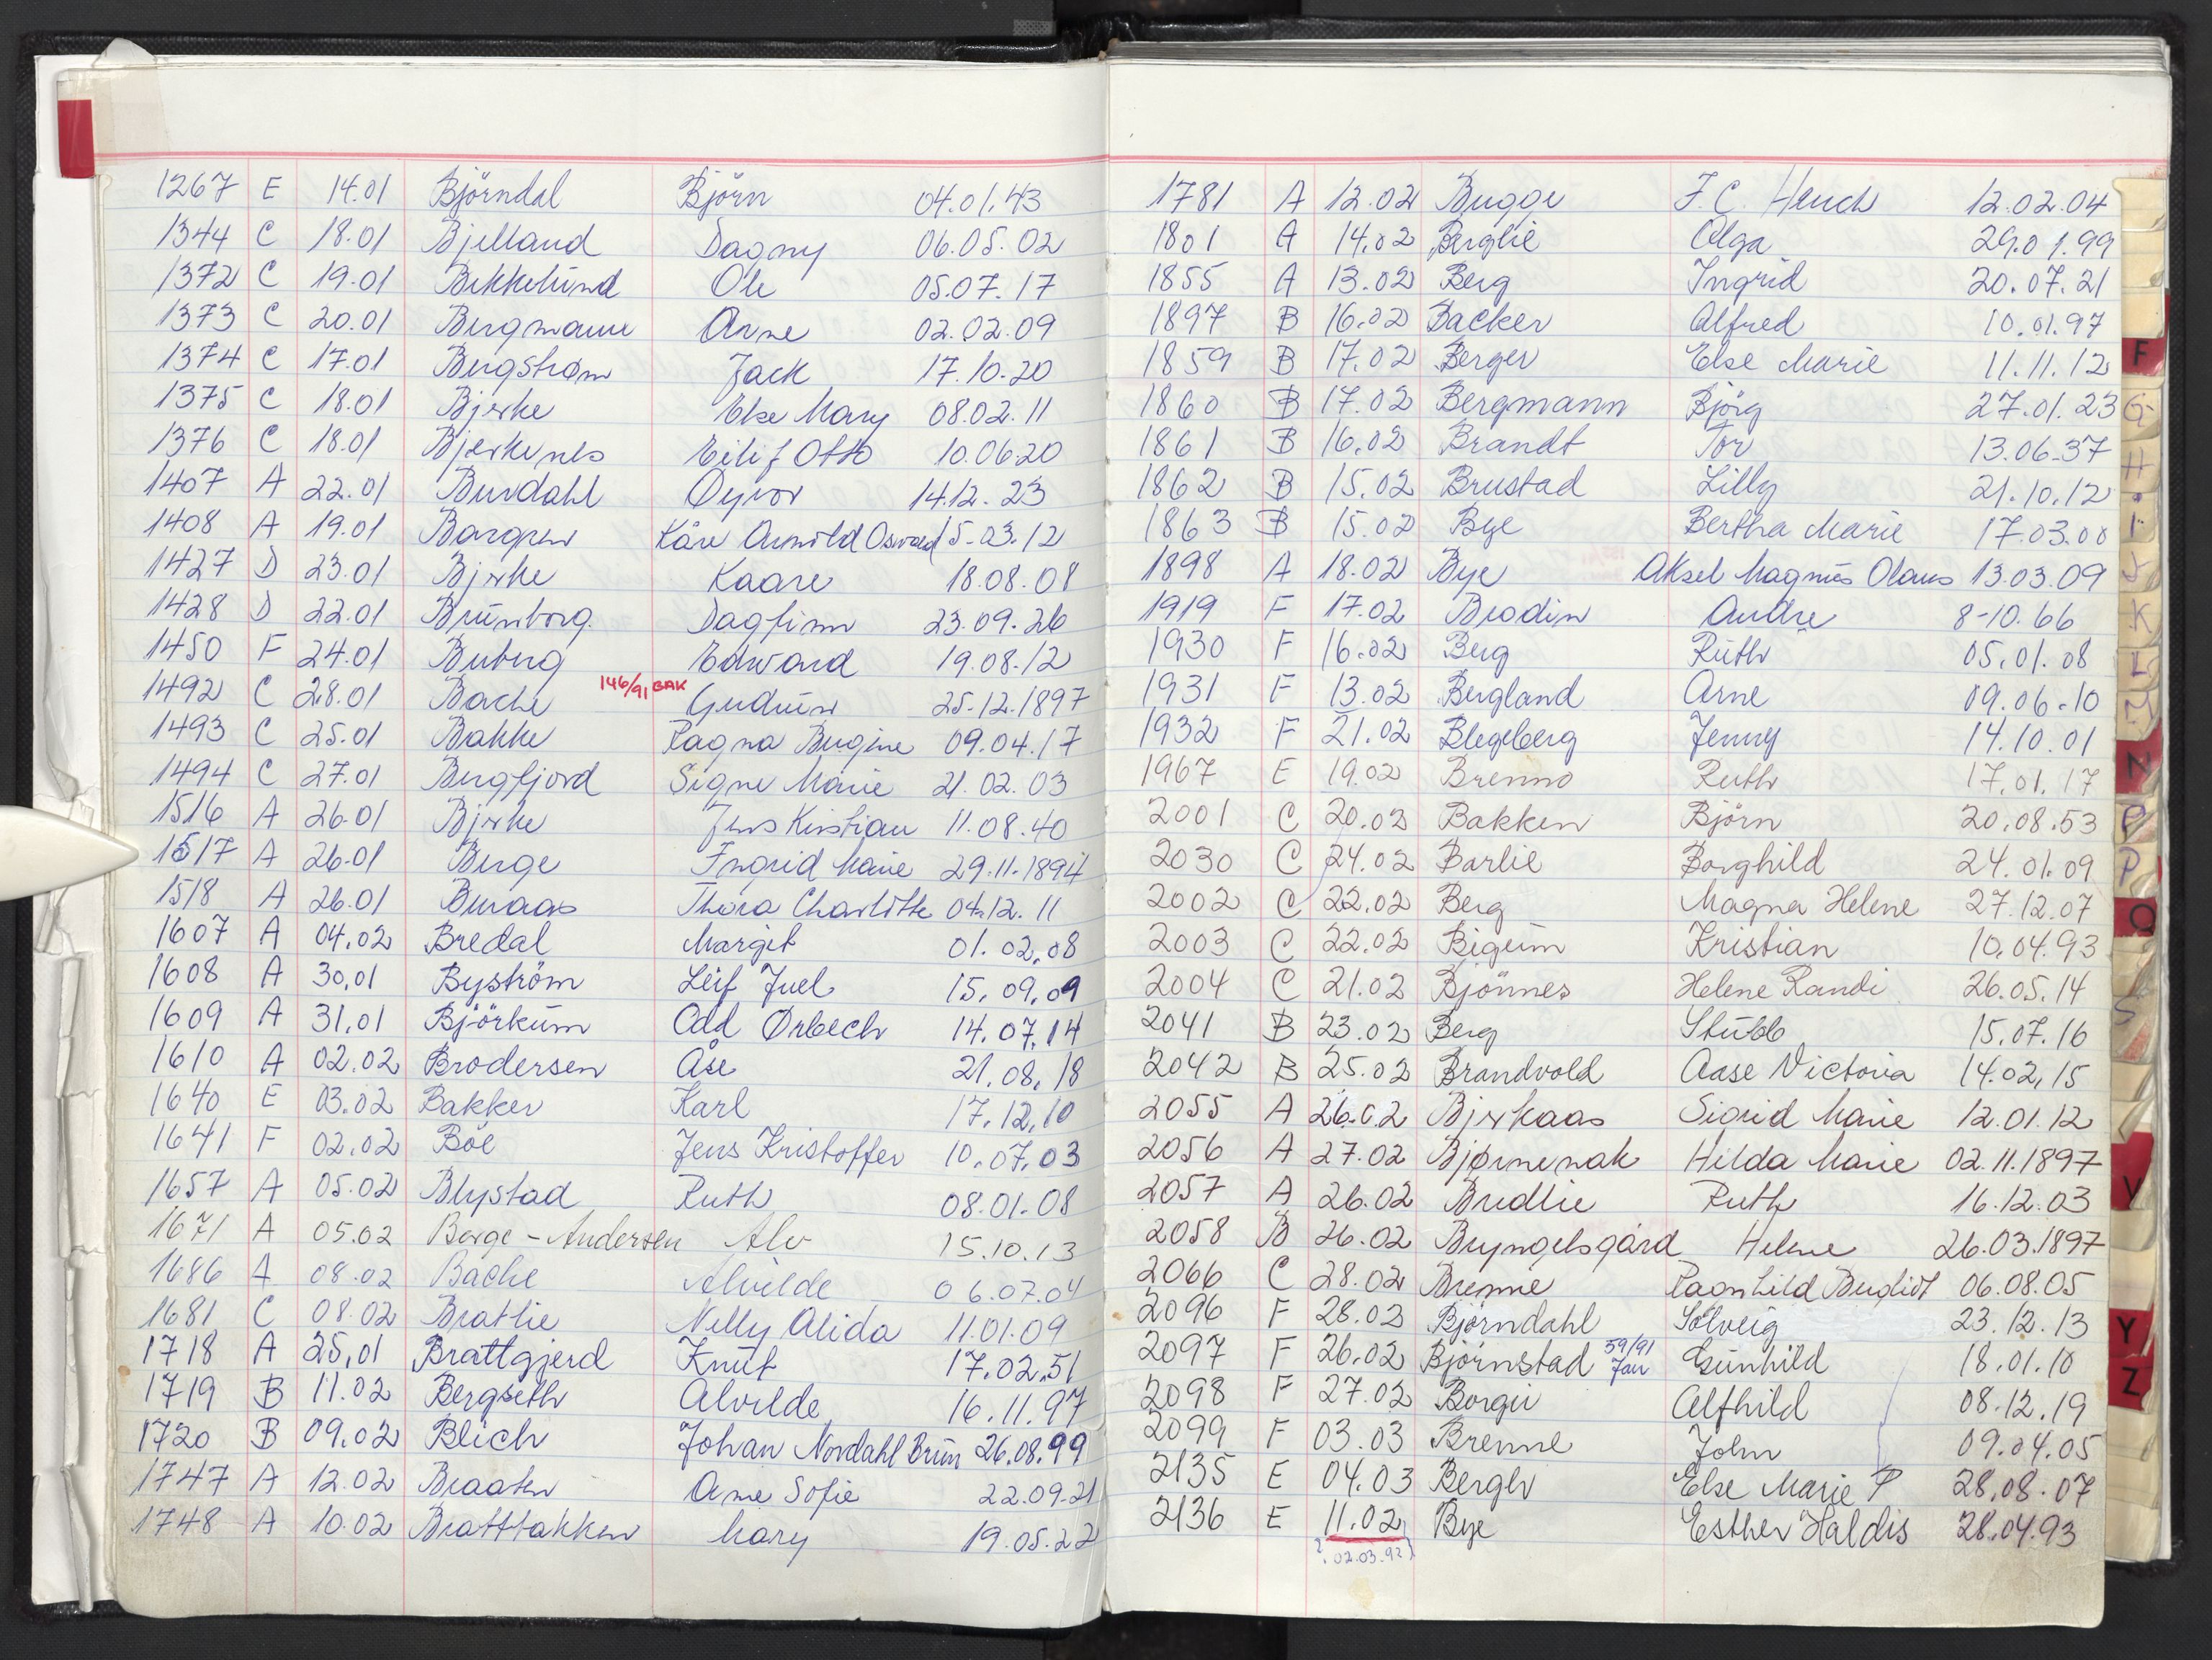 1267 E 14.01 Björndal Björn 04.01.43
1344 C 18.01 Bjelland Dagny 06.05.02
1372 C 19.01 Bekkelund Ole 05.07.17
1373 C 20.01 Bergmann Arne 02.02.09
1374 C 17.01 Bergstrøm Jack 17.10.20
1375 C 18.01 Bjerke Else Mary 08.02.11
1376 C 18.01 Bjerkenes Eilif Otto 10.06.20
1407 A 22.01 Burdahl Øyvor 14.12.23
1408 A 19.01 Borgren Kåre Arnold Osvald 15-03.12
1427 D 23.01 Bjerke Kaare 18.08.08
1428 D 22.01 Brunborg Dagfinn 23.09.26
1450 F 24.01 Buberg Edvard 19.08.12
1492 C 28.01 Bache 146/91 BAK Gudrun 25.12.1897
1493 C 25.01 Bakke Ragna Bergine 09.04.17
1494 C 27.01 Bergfjord Signe Marie 21.02.03
1516 A 26.01 Bjerke Jens Kristian 11.08.40
1517 A 26.01 Berge Ingrid Marie 29.11.1894
1518 A 26.01 Buraas Thora Charlotte 04.12.11
1607 A 04.02 Bredal Margit 01.02.08
1608 A 30.01 Byström Leif Juel 15.09.09
1609 A 31.01 Björkum Odd Ørbech 14.07.14
1610 A 02.02 Brodersen Åse 21.08.18
1640 E 03.02 Bakker Karl 17.12.10
1641 F 02.02 Böe Jens Kristoffer 10.07.03
1657 A 05.02 Blystad Ruth 08.01.08
1671 A 05.02 Borge-Andersen Alv 15.10.13
1686 A 08.02 Bache Alvilde 06.07.04
1681 C 08.02 Bratlie Nelly Alida 11.01.09
1718 A 25.01 Brattgjerd Knut 17.02.51
1719 B 11.02 Bergseth Alvilde 16.11.97
1720 B 09.02 Blich Johan Nordahl Brun 26.08.99
1747 A 12.02 Braaten Arne Sofie 22.09.21
1748 A 10.02 Brattbakken Mary 19.05.22
1781 A 12.02 Bugge F.C. Hauch 12.02.04
1801 A 14.02 Berglie Olga 29.01.99
1855 A 13.02 Berg Ingrid 20.07.21
1897 B 16.02 Backer Alfred 10.01.97
1859 B 17.02 Berger Else Marie 11.11.12
1860 B 17.02 Bergmann Bjørg 27.01.23
1861 B 16.02 Brandt Tor 13.06.37
1862 B 15.02 Brustad Lilly 21.10.12
1863 B 15.02 Bye Bertha Marie 17.03.00
1898 A 18.02 Bye Aksel Magnus Olaus 13.03.09
1919 F 17.02 Brodin Andre 8-10.66
1930 F 16.02 Berg Ruth 05.01.08
1931 F 13.02 Bergland Arne 09.06.10
1932 F 21.02 Blegeberg Jenny 14.10.01
1967 E 19.02 Brenno Ruth 17.01.17
2001 C 20.02 Bakken Björn 20.08.53
2030 C 24.02 Barlie Borghild 24.01.09
2002 C 22.02 Berg Magna Helene 27.12.07
2003 C 22.02 Bigum Kristian 10.04.93
2004 C 21.02 Bjönnes Helene Randi 26.05.14
2041 B 23.02 Berg Stubb 15.07.16
2042 B 25.02 Brandvold Aase Victoria 14.02.15
2055 A 26.02 Bjerkaas Sigrid Marie 12.01.12
2056 A 27.02 Bjørnenak Hilda Marie 02.11.1897
2057 A 26.02 Bredlie Ruth 16.12.03
2058 B 26.02 Bryngelsgård Helene 26.03.1897
2066 C 28.02 Brenne Ragnhild Bergliot 06.08.05
2096 F 28.02 Björndahl Solveig 23.12.13
2097 F 26.02 Björnstad 59/91 Jan Gunhild 18.01.10
2098 F 27.02 Borgir Alfhild 08.12.19
2099 F 03.03 Brenne John 09.04.05
2135 E 04.03 Bergly Else Marie P 28.08.07
2136 E 11.02 Bye Esther Haldis 28.04.93
? (02.03.92)
F
G
H
I
J
K
L
M
N
O
P
Q
S
V
Y
Z